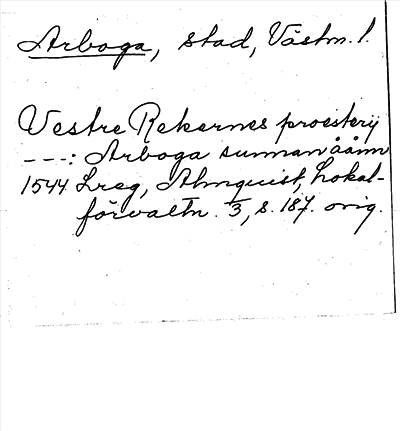 Arboga, stad, Västm. l.
Vestre Rekernes proesterij
---: Arboga sunnan åånn
1544 Lreg, Almquist, Lokal-
förvaltn. 3, s. 187. orig.